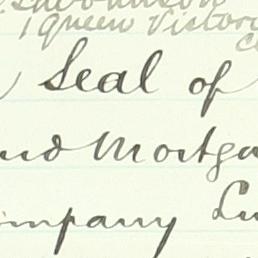 1 Queen Victori
Seal of
and Mortga
ompany Lim